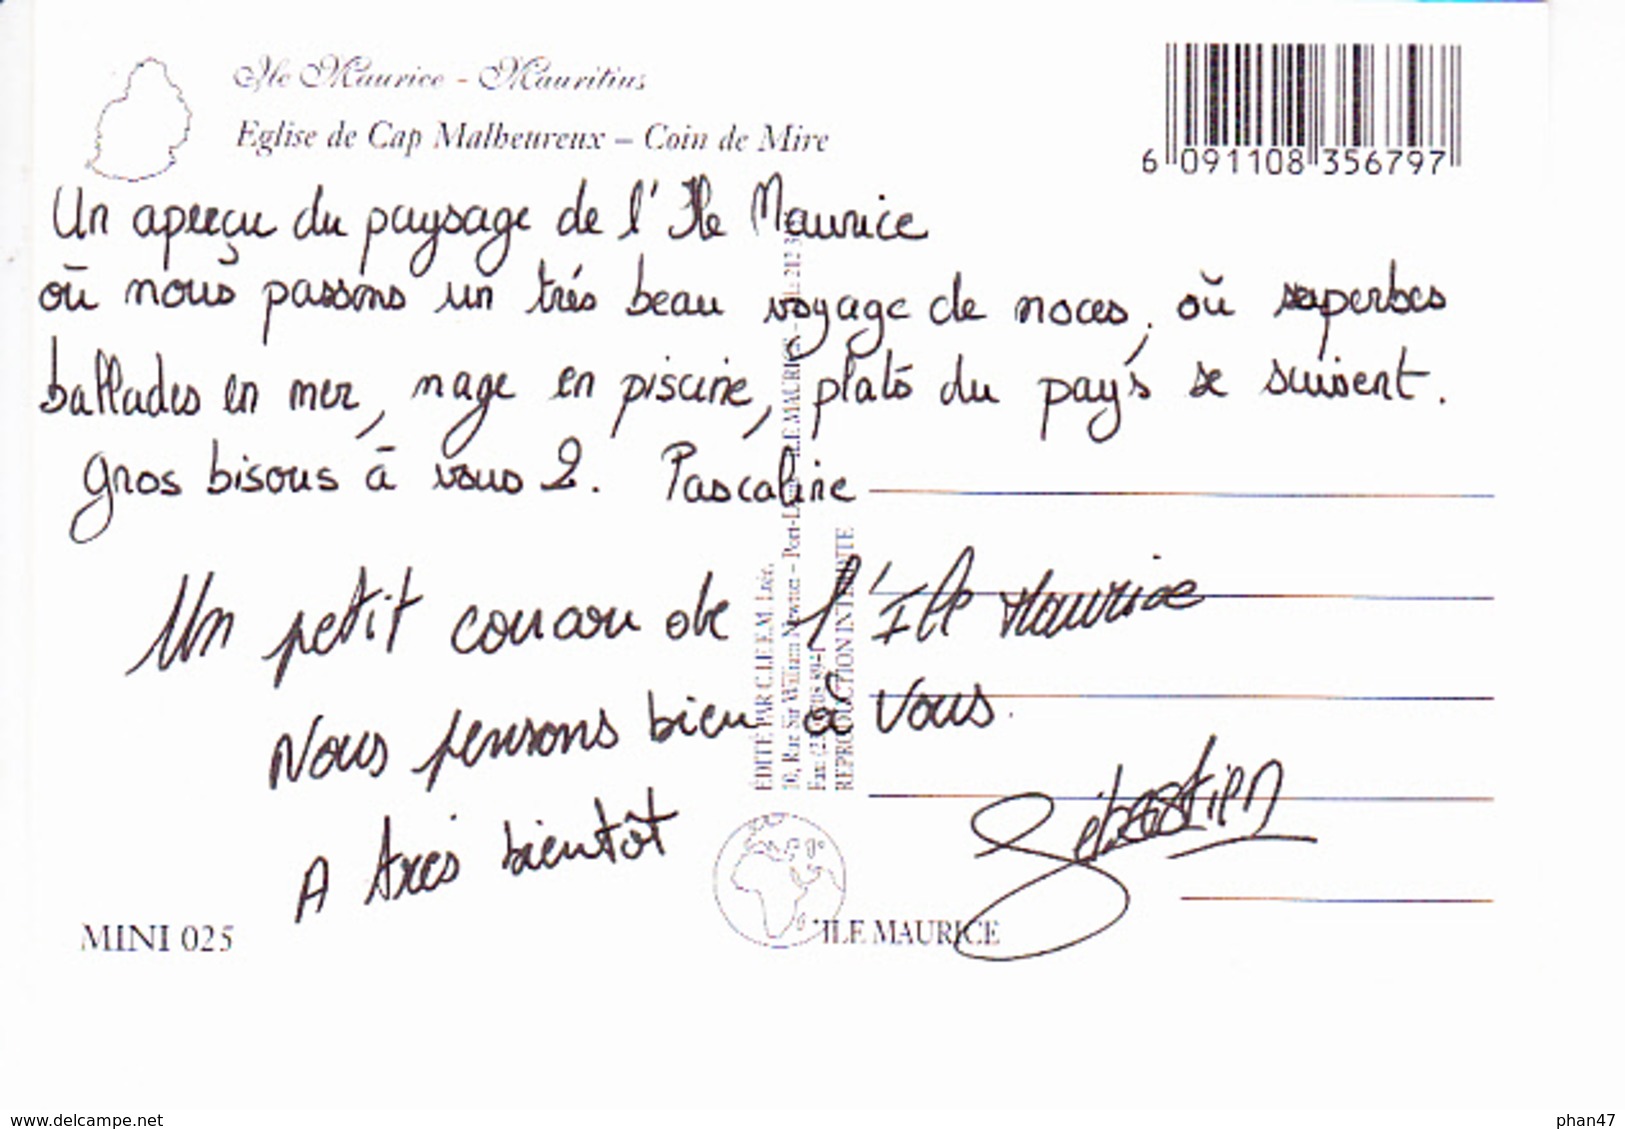 Ile Maurice - Mauritius
Eglise de Cap Malheureux – Coin de Mire
6 091108 356797
Un aperçu du paysage de l'Ile Maurice
où nous passons un trés beau voyage de noces, où superbes
ballades en mer, nage en piscine, plats du pays se suivent.
Gros bisous à vous 2. Pascaline
Un petit coucou de l'Ile Maurice
Nous pensons bien à vous.
A trés bientôt
Sébastien
ÉDITÉ PAR C.I.E.E.M. Ltée.
10, Rue Sir William Newton – Port-Louis – ILE MAURICE
REPRODUCTION INTERDITE
MINI 025
ILE MAURICE
www.delcampe.net
phan47